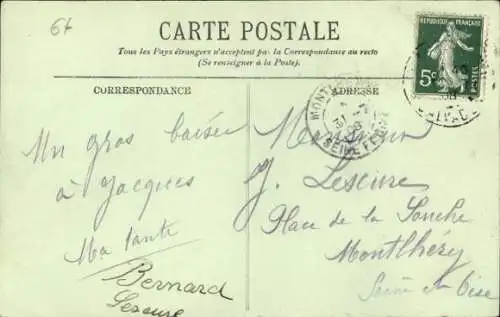 64
CARTE POSTALE
Tous les Pays étrangers n'acceptent pas la Correspondance au recto
(Se renseigner à la Poste).
RÉPUBLIQUE FRANÇAISE
5c
POSTES
CORRESPONDANCE
ADRESSE
Un gros baiser
à Jacques
Ma tante
Bernard
Lescure
Monsieur
J. Lescure
Place de la Souche
Montlhéry
Seine et Oise